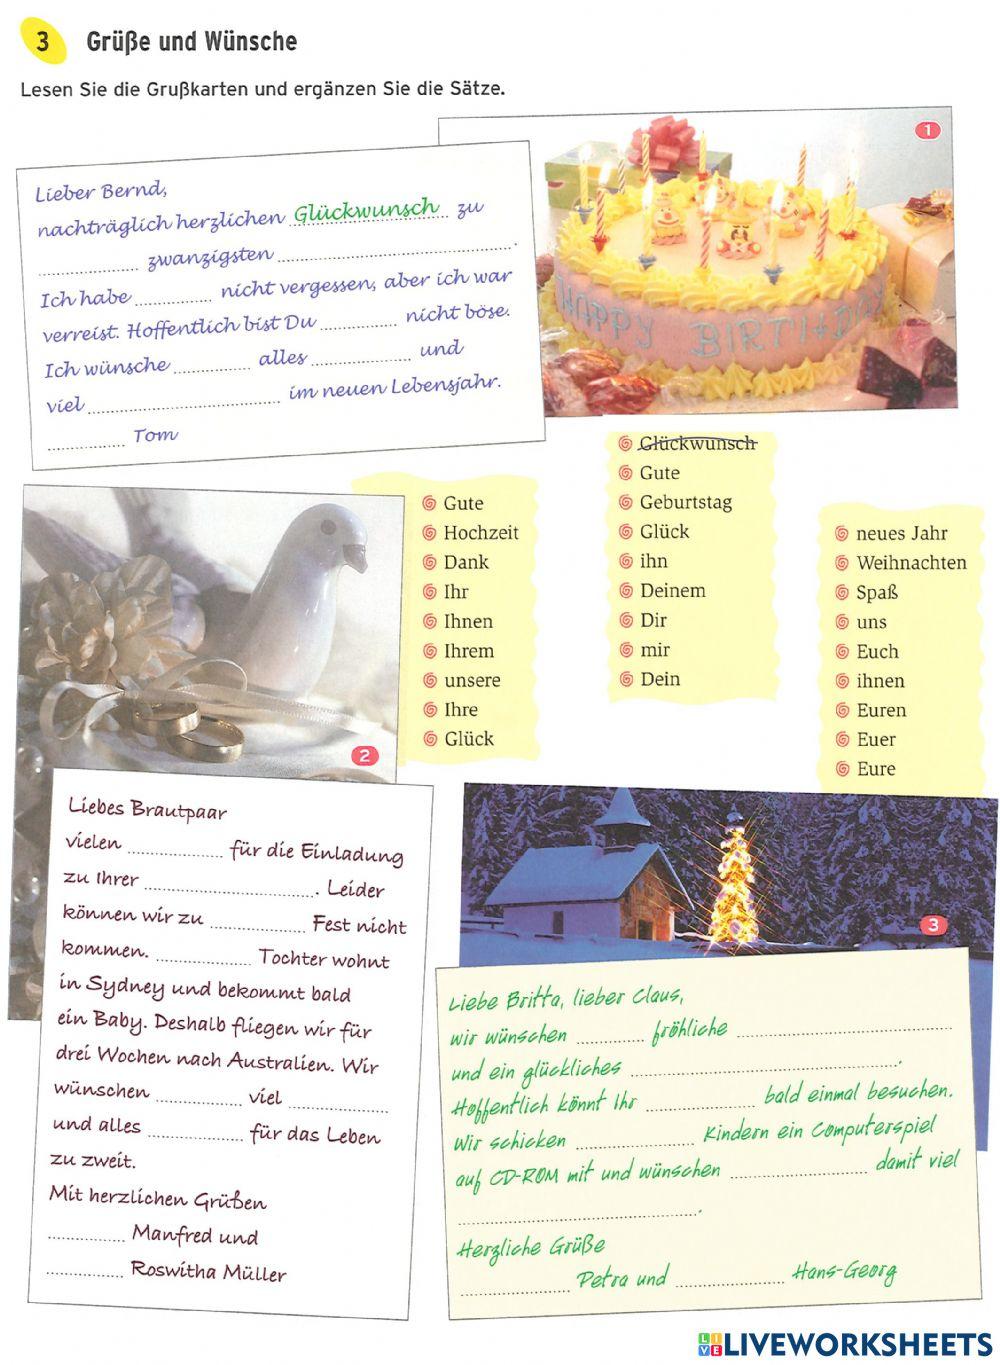 3 Grüße und Wünsche
Lesen Sie die Grußkarten und ergänzen Sie die Sätze.
1
HAPPY BIRTHDAY
Lieber Bernd,
nachträglich herzlichen Glückwunsch zu
zwanzigsten .
Ich habe nicht vergessen, aber ich war
verreist. Hoffentlich bist Du nicht böse.
Ich wünsche alles und
viel im neuen Lebensjahr.
Tom
Gute
Hochzeit
Dank
Ihr
Ihnen
Ihrem
unsere
Ihre
Glück
Glückwunsch
Gute
Geburtstag
Glück
ihn
Deinem
Dir
mir
Dein
neues Jahr
Weihnachten
Spaß
uns
Euch
ihnen
Euren
Euer
Eure
2
Liebes Brautpaar
vielen für die Einladung
zu Ihrer . Leider
können wir zu Fest nicht
kommen. Tochter wohnt
in Sydney und bekommt bald
ein Baby. Deshalb fliegen wir für
drei Wochen nach Australien. Wir
wünschen viel
und alles für das Leben
zu zweit.
Mit herzlichen Grüßen
Manfred und
Roswitha Müller
3
Liebe Britta, lieber Claus,
wir wünschen fröhliche
und ein glückliches .
Hoffentlich könnt Ihr bald einmal besuchen.
Wir schicken Kindern ein Computerspiel
auf CD-ROM mit und wünschen damit viel
.
Herzliche Grüße
Petra und Hans-Georg
LIVEWORKSHEETS